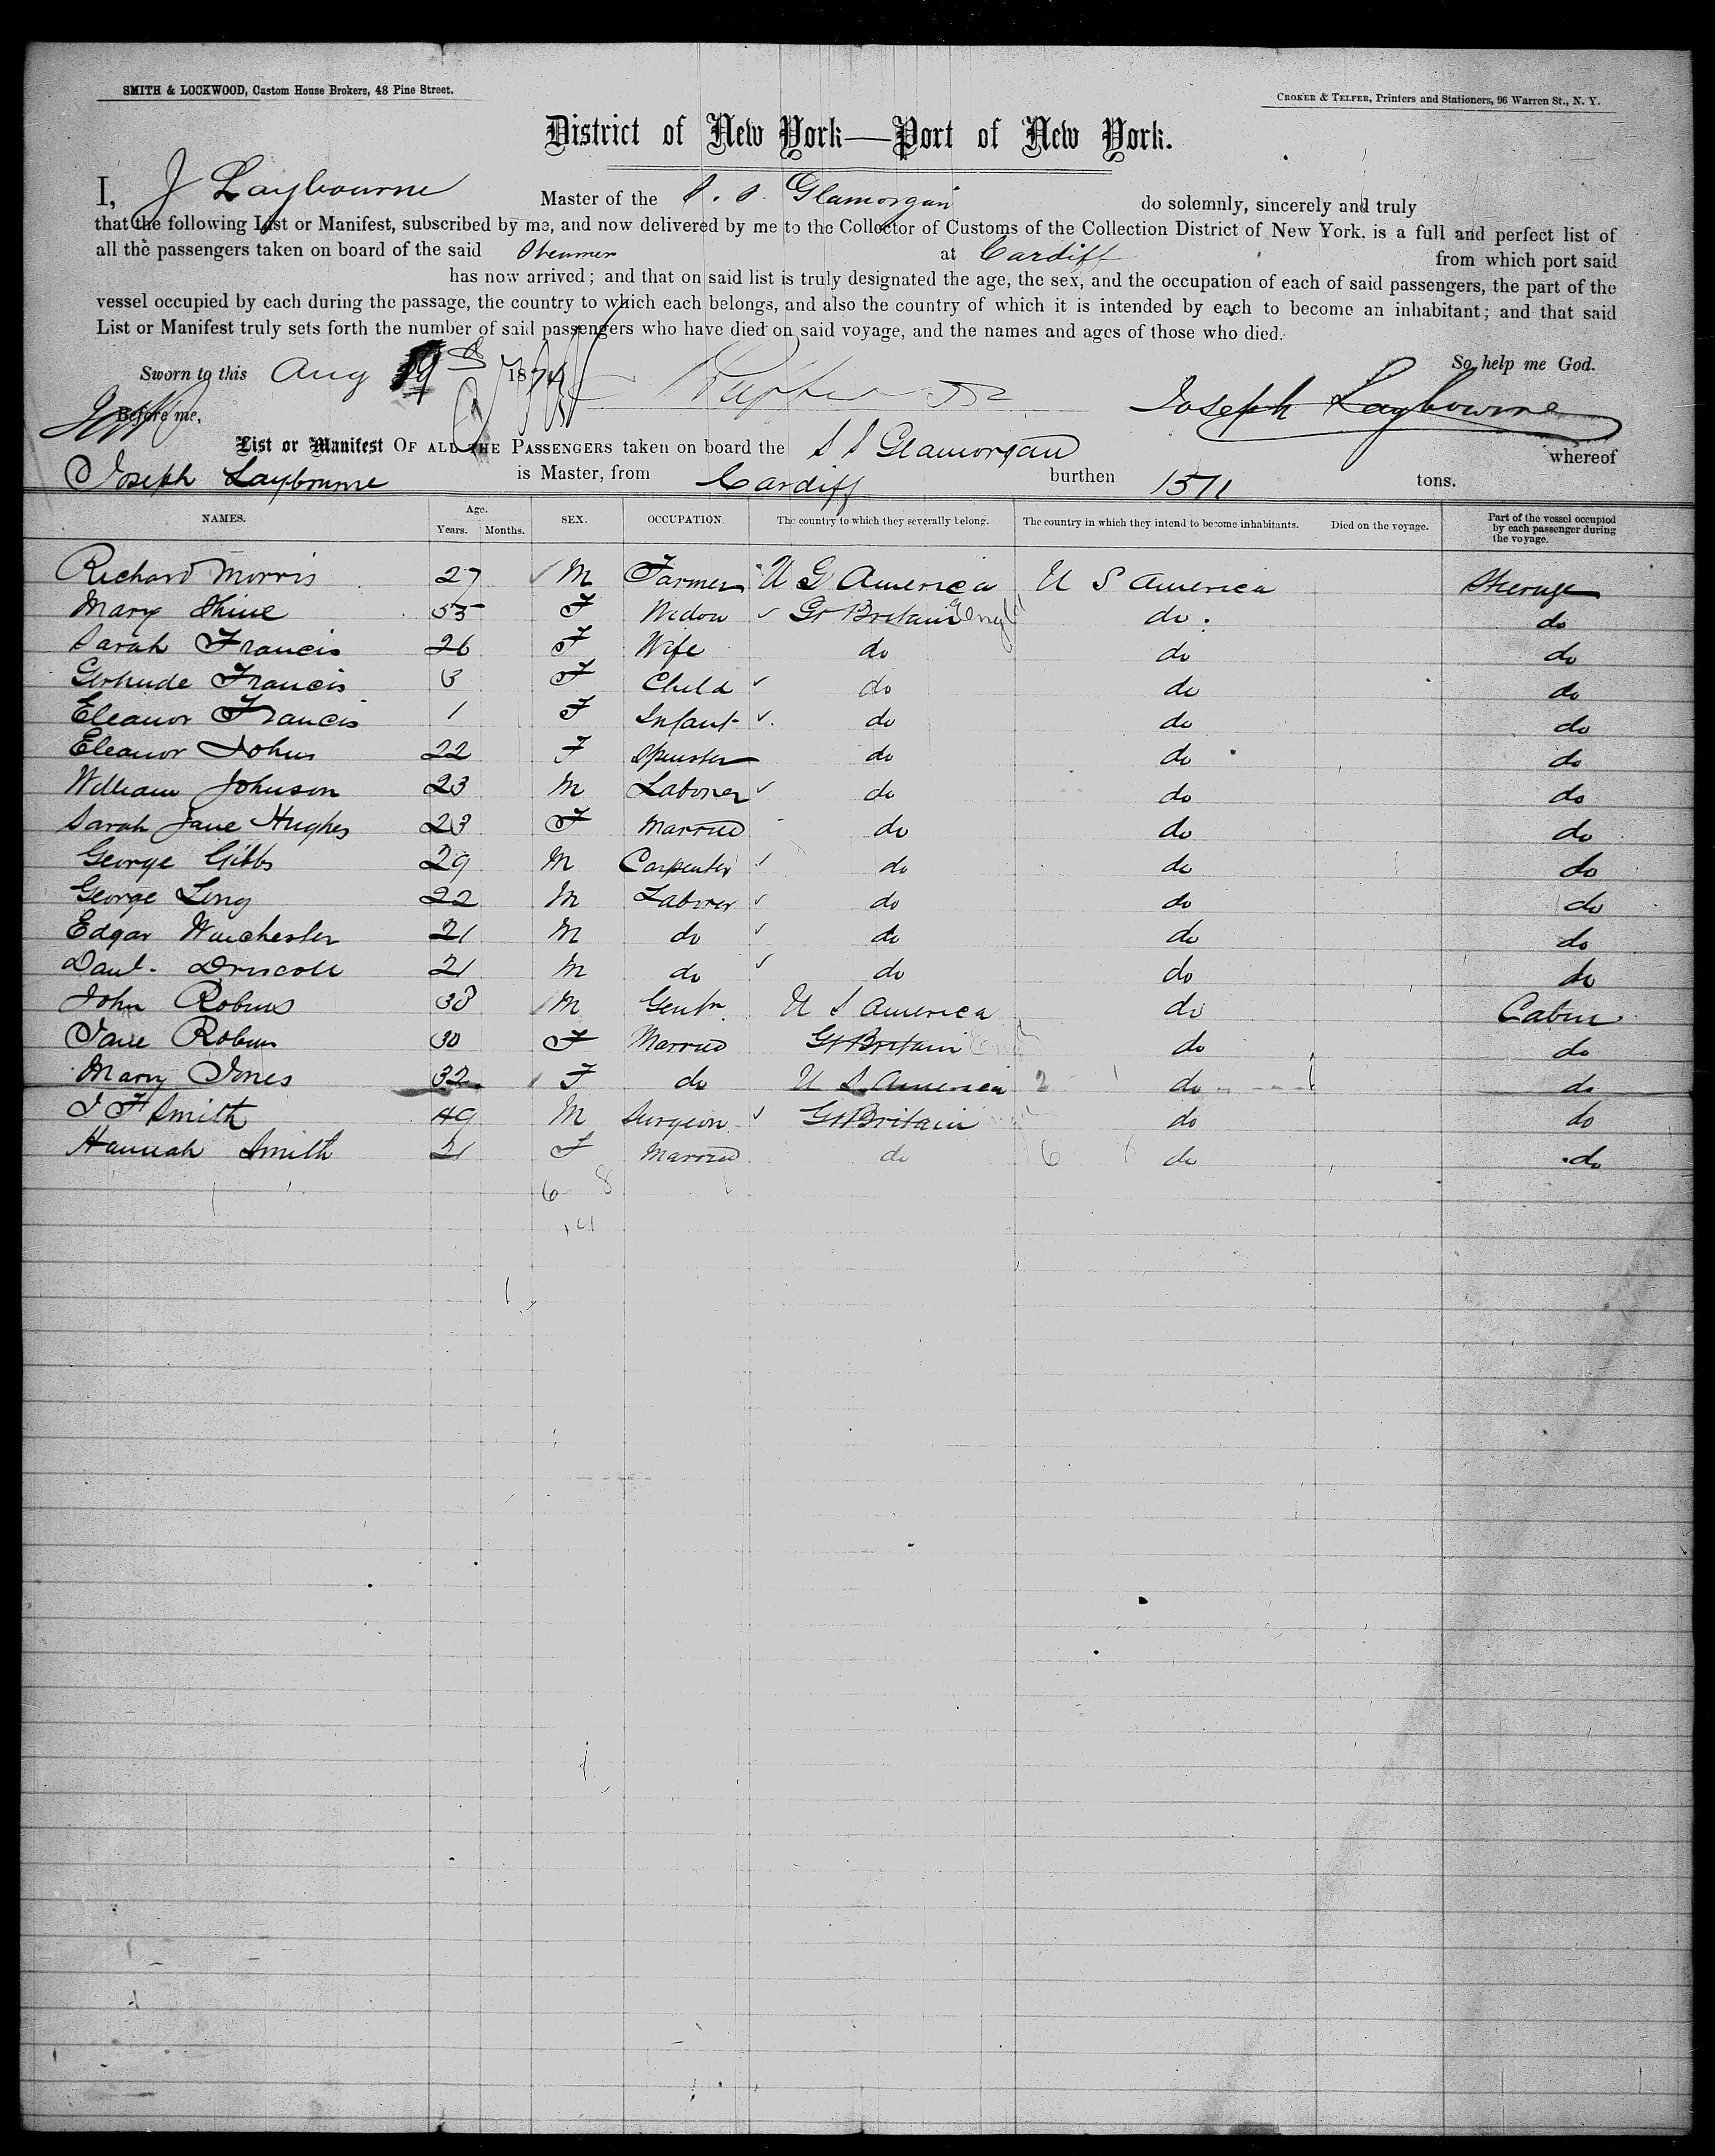 SMITH & LOCKWOOD, Custom House Brokers, 48 Pine Street.
CROKER & TELFER, Printers and Stationers, 96 Warren St., N. Y.
District of New York—Port of New York.
I, J Laybourne Master of the S. S. Glamorgan do solemnly, sincerely and truly
that the following List or Manifest, subscribed by me, and now delivered by me to the Collector of Customs of the Collection District of New York, is a full and perfect list of
all the passengers taken on board of the said Steamer at Cardiff from which port said
has now arrived; and that on said list is truly designated the age, the sex, and the occupation of each of said passengers, the part of the
vessel occupied by each during the passage, the country to which each belongs, and also the country of which it is intended by each to become an inhabitant; and that said
List or Manifest truly sets forth the number of said passengers who have died on said voyage, and the names and ages of those who died.
So help me God.
Sworn to this Aug 187
Joseph Laybourne
Before me,
List or Manifest OF ALL THE PASSENGERS taken on board the S S Glamorgan whereof
Joseph Laybourne is Master, from Cardiff burthen 1571 tons.
NAMES. Age. Years. Months. SEX. OCCUPATION. The country to which they severally belong. The country in which they intend to become inhabitants. Died on the voyage. Part of the vessel occupied by each passenger during the voyage.
Richard Morris 27 M Farmer U S America U S America Steerage
Mary Shine 55 F Widow Gt Britain Engld do do
Sarah Francis 26 F Wife do do do
Gertrude Francis 3 F Child do do do
Eleanor Francis 1 F Infant do do do
Eleanor Johns 22 F Spinster do do do
William Johnson 23 M Laborer do do do
Sarah Jane Hughes 23 F Married do do do
George Gibbs 29 M Carpenter do do do
George Long 22 M Laborer do do do
Edgar Winchester 21 M do do do do
Danl. Driscoll 21 M do do do do
John Robins 38 M Gentn U S America do Cabin
Jane Robins 30 F Married Gt Britain do do
Mary Jones 32 F do U S America 2 do do
J F Smith 49 M Surgeon Gt Britain do do
Hannah Smith 21 F Married do 6 do do
6 8
14